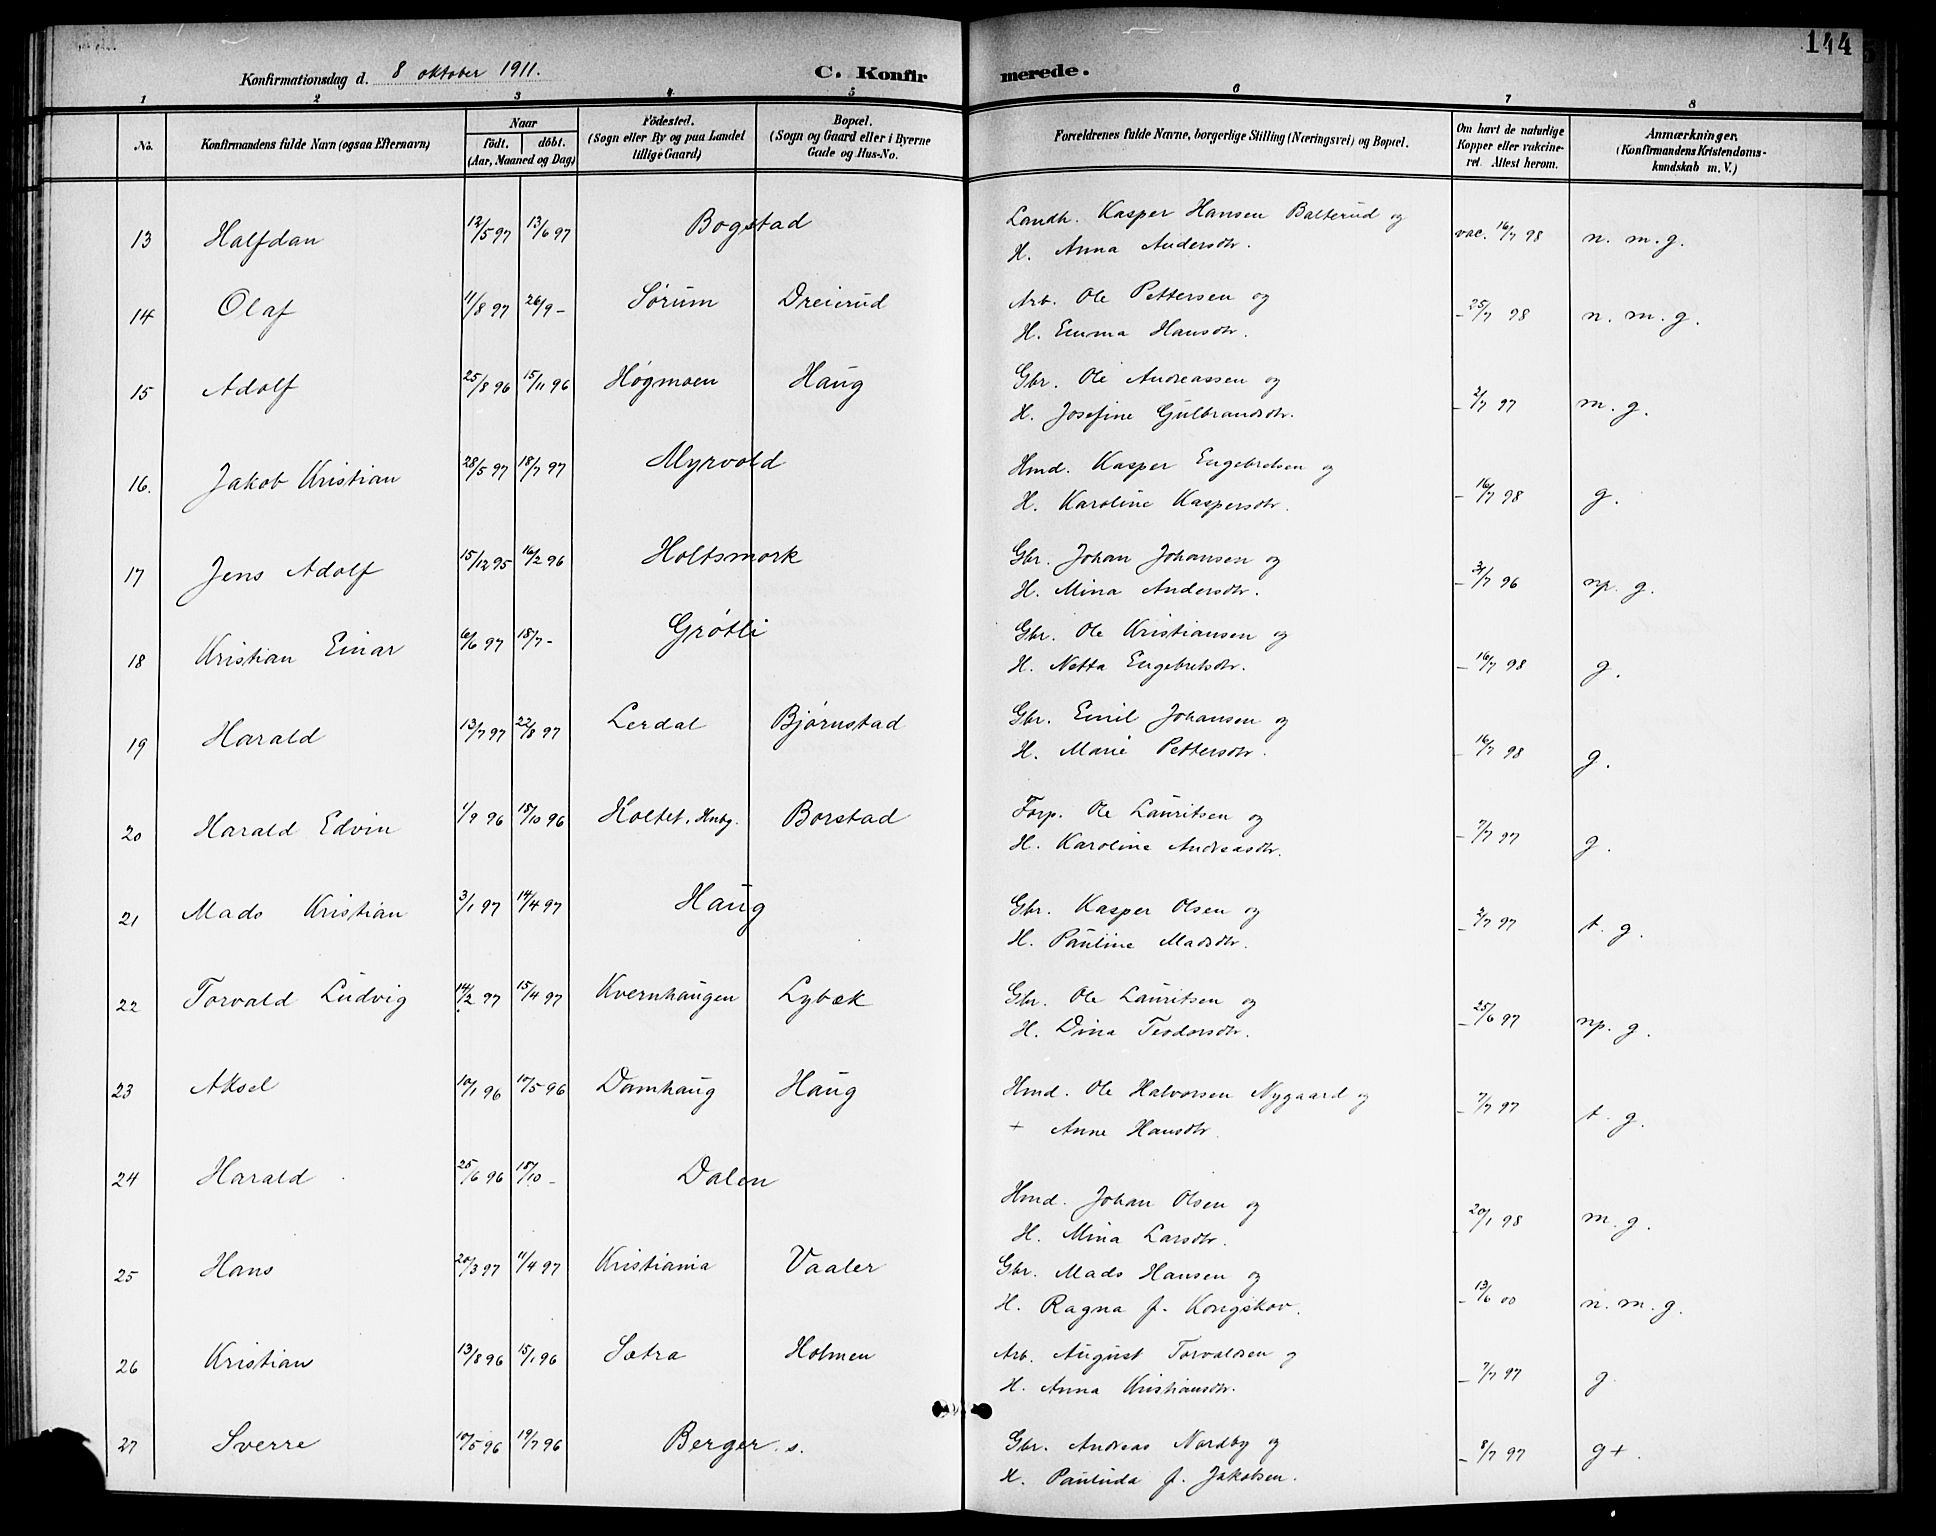 144
Konfirmationsdag d. 8 oktober 1911. C. Konfirmerede.
1 2 3 4 5 6 7 8
No. Konfirmandens fulde Navn (ogsaa Efternavn) Naar født. døbt. (Aar, Maaned og Dag) Födested. (Sogn eller By og paa Landet tillige Gaard) Bopæl. (Sogn og Gaard eller i Byerne Gade og Hus-No. Forældrenes fulde Navne, borgerlige Stilling (Næringsvei) og Bopæl. Om havt de naturlige Kopper eller vakcineret. Attest herom. Anmærkninger. (Konfirmandens Kristendomskundskab m. V.)
13 Halfdan 12/5 97 13/6 97 Bogstad Landh. Kasper Hansen Balterud og vac. 16/7 98 n. m. g.
H. Anna Andersdtr.
14 Olaf 11/8 97 26/9 – Sørum Dreierud Arb. Ole Pettersen og – 25/7 98 n. m. g.
H. Emma Hansdtr.
15 Adolf 25/8 96 15/11 96 Høgmoen Haug Gbr. Ole Andreassen og – 2/7 97 m. g.
H. Josefine Gulbrandsdtr.
16. Jakob Kristian 28/5 97 18/7 97 Myrvold Hmd. Kasper Engebretsen og – 16/7 98 g.
H. Karoline Kaspersdtr.
17 Jens Adolf 15/12 95 16/2 96 Holtsmork Gbr. Johan Johansen og – 3/7 96 np. g.
H. Mina Andersdtr.
18 Kristian Einar 6/6 97 18/7 – Grøtli Gbr. Ole Kristiansen og – 16/7 98 g.
H. Netta Engebretsdtr.
19 Harald 13/7 97 22/8 97 Lerdal Bjørnstad Gbr. Emil Johansen og – 16/7 98 g.
H. Marie Pettersdtr.
20 Harald Edvin 1/9 96 18/10 96 Holtet, Hurg. Borstad Forp. Ole Lauritsen og – 7/7 97 g.
H. Karoline Andreasdtr.
21 Mads Kristian 3/1 97 14/4 97 Haug Gbr. Kasper Olsen og – 2/7 97 t. g.
H. Pauline Madsdtr.
22 Torvald Ludvig 14/2 97 15/4 97 Kvernhaugen Lybæk Gbr. Ole Lauritsen og – 25/6 97 np. g.
H. Dina Teodorsdtr.
23 Aksel 10/1 96 10/5 96 Damhaug Haug Hmd. Ole Halvorsen Nygaard og – 7/7 97 t. g.
+ Anne Hansdtr.
24 Harald 25/6 96 18/10 – Dalen Hmd. Johan Olsen og – 20/1 98 m. g.
H. Mina Larsdtr.
25 Hans 20/3 97 11/4 97 Kristiania Vaaler Gbr. Mads Hansen og – 13/6 00 n. m. g.
H. Ragna f. Kongskov.
26 Kristian 13/8 96 15/1 96 Sætra Holmen Arb. August Torvaldsen og – 7/7 97 g.
H. Anna Kristiansdtr.
27 Sverre 10/5 96 19/7 96 Berger. s. Gbr. Andreas Nordby og – 8/7 97 g +.
H. Paulinda f. Jakobsen.